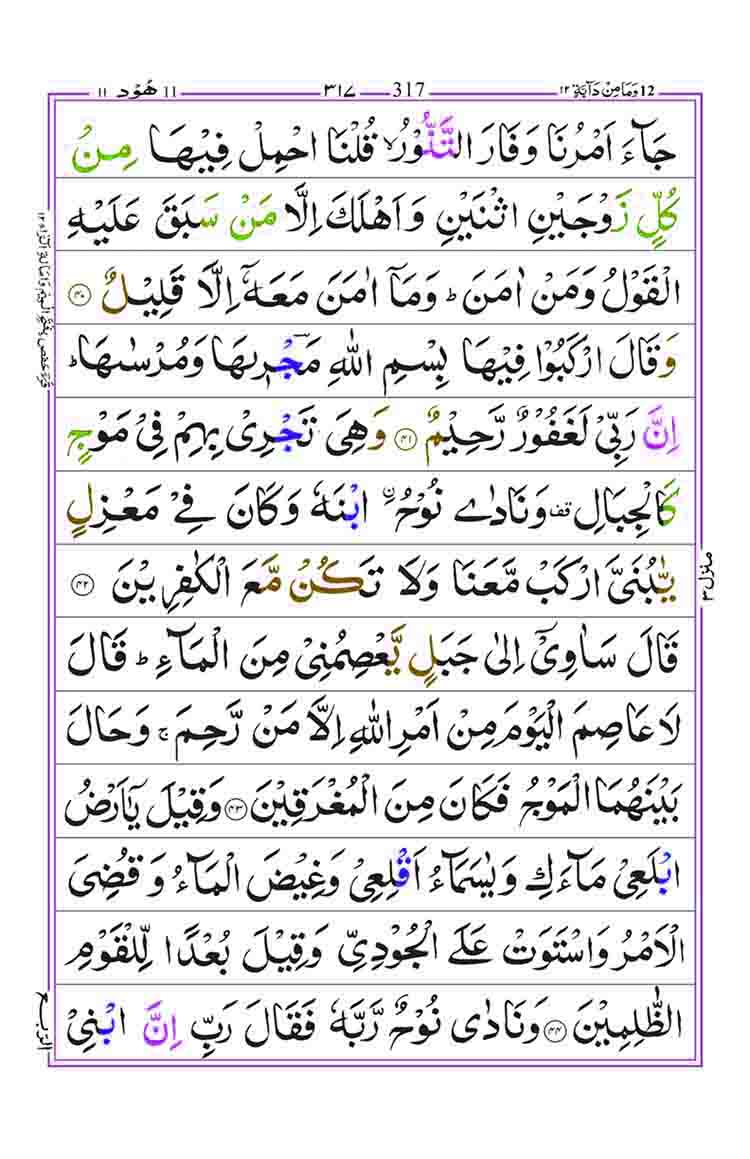 12 وَمَا مِنْ دَآبَّةٍ ١٢ 317 ٣١٧ 11 هُوْد ١١
جَآءَ اَمْرُنَا وَفَارَ التَّنُّوْرُ ۙ قُلْنَا احْمِلْ فِيْهَا مِنْ
كُلٍّ زَوْجَيْنِ اثْنَيْنِ وَاَهْلَكَ اِلَّا مَنْ سَبَقَ عَلَيْهِ
الْقَوْلُ وَمَنْ اٰمَنَ ؕ وَمَآ اٰمَنَ مَعَهٗۤ اِلَّا قَلِيْلٌ ﴿۴۰﴾
وَقَالَ ارْكَبُوْا فِيْهَا بِسْمِ اللّٰهِ مَجْؔرٖىهَا وَمُرْسٰىهَا ؕ
اِنَّ رَبِّىْ لَغَفُوْرٌ رَّحِيْمٌ ﴿۴۱﴾ وَهِىَ تَجْرِىْ بِهِمْ فِىْ مَوْجٍ
كَالْجِبَالِ قف وَنَادٰى نُوْحُ ۨ ابْنَهٗ وَكَانَ فِىْ مَعْزِلٍ
يّٰبُنَىَّ ارْكَبْ مَّعَنَا وَلَا تَكُنْ مَّعَ الْكٰفِرِيْنَ ﴿۴۲﴾
قَالَ سَاٰوِىْۤ اِلٰى جَبَلٍ يَّعْصِمُنِىْ مِنَ الْمَآءِ ؕ قَالَ
لَا عَاصِمَ الْيَوْمَ مِنْ اَمْرِ اللّٰهِ اِلَّا مَنْ رَّحِمَ ۚ وَحَالَ
بَيْنَهُمَا الْمَوْجُ فَكَانَ مِنَ الْمُغْرَقِيْنَ ﴿۴۳﴾ وَقِيْلَ يٰۤاَرْضُ
ابْلَعِىْ مَآءَكِ وَيٰسَمَآءُ اَقْلِعِىْ وَغِيْضَ الْمَآءُ وَقُضِىَ
الْاَمْرُ وَاسْتَوَتْ عَلَى الْجُوْدِىِّ وَقِيْلَ بُعْدًا لِّلْقَوْمِ
الظّٰلِمِيْنَ ﴿۴۴﴾ وَنَادٰى نُوْحٌ رَّبَّهٗ فَقَالَ رَبِّ اِنَّ ابْنِىْ
منزل ٣
الربع